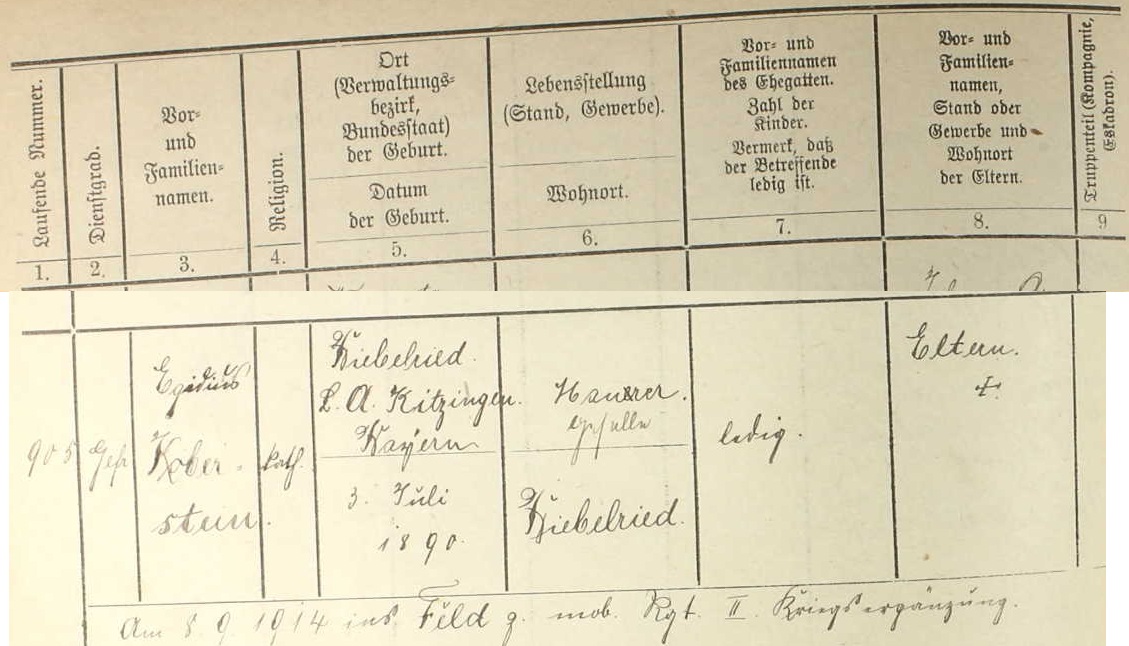 Laufende Nummer.
Dienstgrad.
Vor-
und
Familien-
namen.
Religion.
Ort
(Verwaltungs-
bezirk,
Bundesstaat)
der Geburt.
Datum
der Geburt.
Lebensstellung
(Stand, Gewerbe).
Wohnort.
Vor- und
Familiennamen
des Ehegatten.
Zahl der
Kinder.
Vermerk, daß
der Betreffende
ledig ist.
Vor- und
Familien-
namen,
Stand oder
Gewerbe und
Wohnort
der Eltern.
Truppenteil (Kompagnie,
Eskadron).
1.
2.
3.
4.
5.
6.
7.
8.
9
905
Gefr
Egidius
Kober
stein.
kath.
Biebelried.
B. A. Kitzingen.
Bayern
3. Juli
1890.
Maurer.
Biebelried.
ledig.
Eltern.
Am 8. 9. 1914 ins Feld z. mob. Rgt. II. Kriegsergänzung.